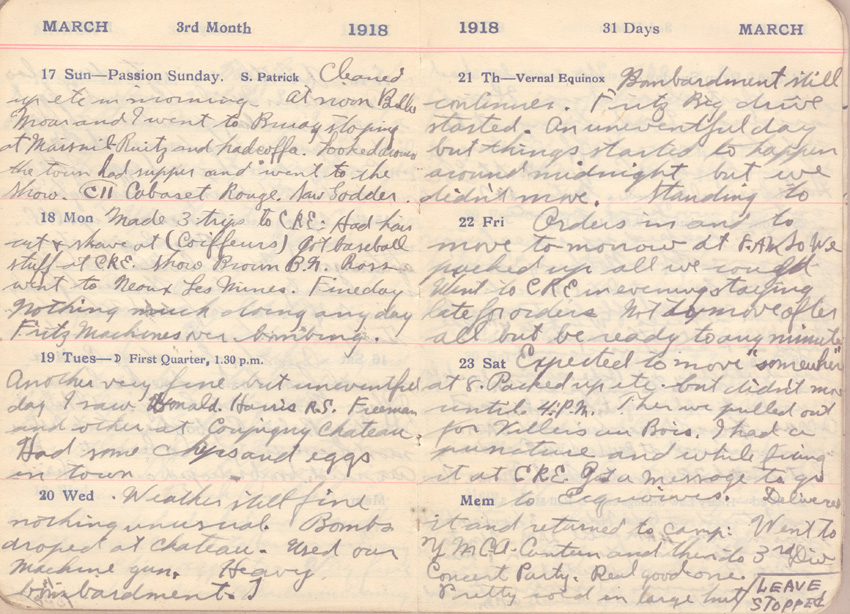 MARCH 3rd Month 1918
17 Sun—Passion Sunday. S. Patrick Cleaned
up etc in morning. At noon
Moar and I went to Bruay stoping
at Maisnil Ruitz and had coffa. Looked around
the town had supper and went to the
show. C11 Cabaset Rouge. Saw Sodder.
18 Mon Made 3 trips to C.R.E. Had hair
cut & shave at (Coiffeurs) got baseball
stuff at C.R.E. Show Brown B.N. Ross
went to Neoux Les Mines. Fine day
Nothing much doing any day
Fritz Machines over bombing.
19 Tues—D First Quarter, 1.30 p.m.
Another very fine but uneventful
day I saw Donald. Harris R.E. Freeman
and other at Coupigny Chateau.
Had some chips and eggs
in town
20 Wed . Weather still fine
nothing unusual. Bombs
droped at chateau. Used our
Machine gun. Heavy
bombardment.
1918 31 Days MARCH
21 Th—Vernal Equinox Bombardment still
continues. Fritz Big drive
started. An uneventful day
but things started to happen
around midnight but we
didn't move. Standing to
22 Fri Orders in and to
move tomorrow at 8.AM So We
packed up all we could
Went to C.R.E in evening staying
late for orders Not to move after
all but be ready to any minute
23 Sat Expected to move "somewher"
at 8. Packed up etc. but didn't move
until 4.P.M. Then we pulled out
for Villers au Bois. I had a
puncture and while fixing
it at C.R.E. Got a message to go
Mem to Ecquoivres. Delivered
it and returned to camp: Went to
Y M C A Canteen and then to 3rd Div
Concert Party. Real good one.
Pretty cold in large hut
LEAVE
STOPPED